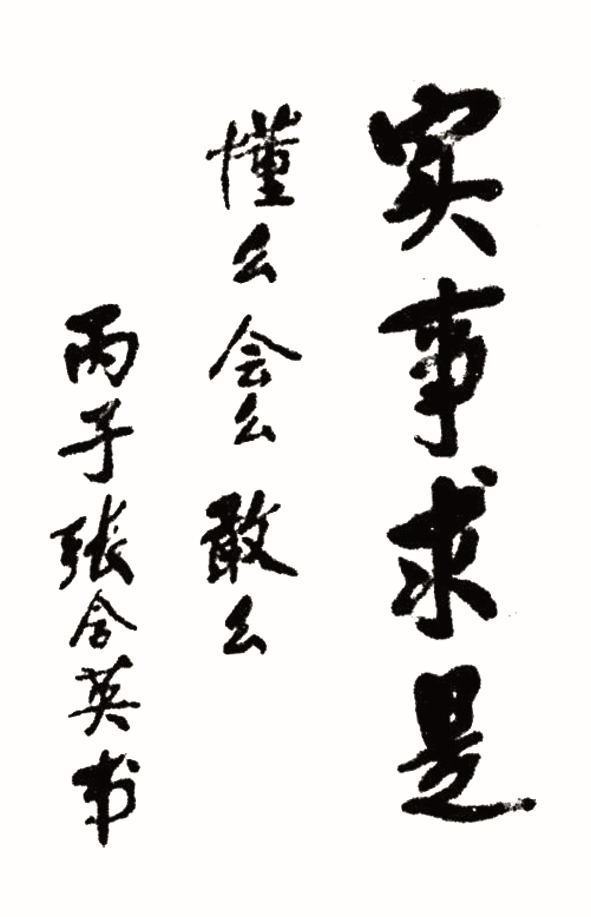 实事求是
懂么会么敢么
丙子张含英书